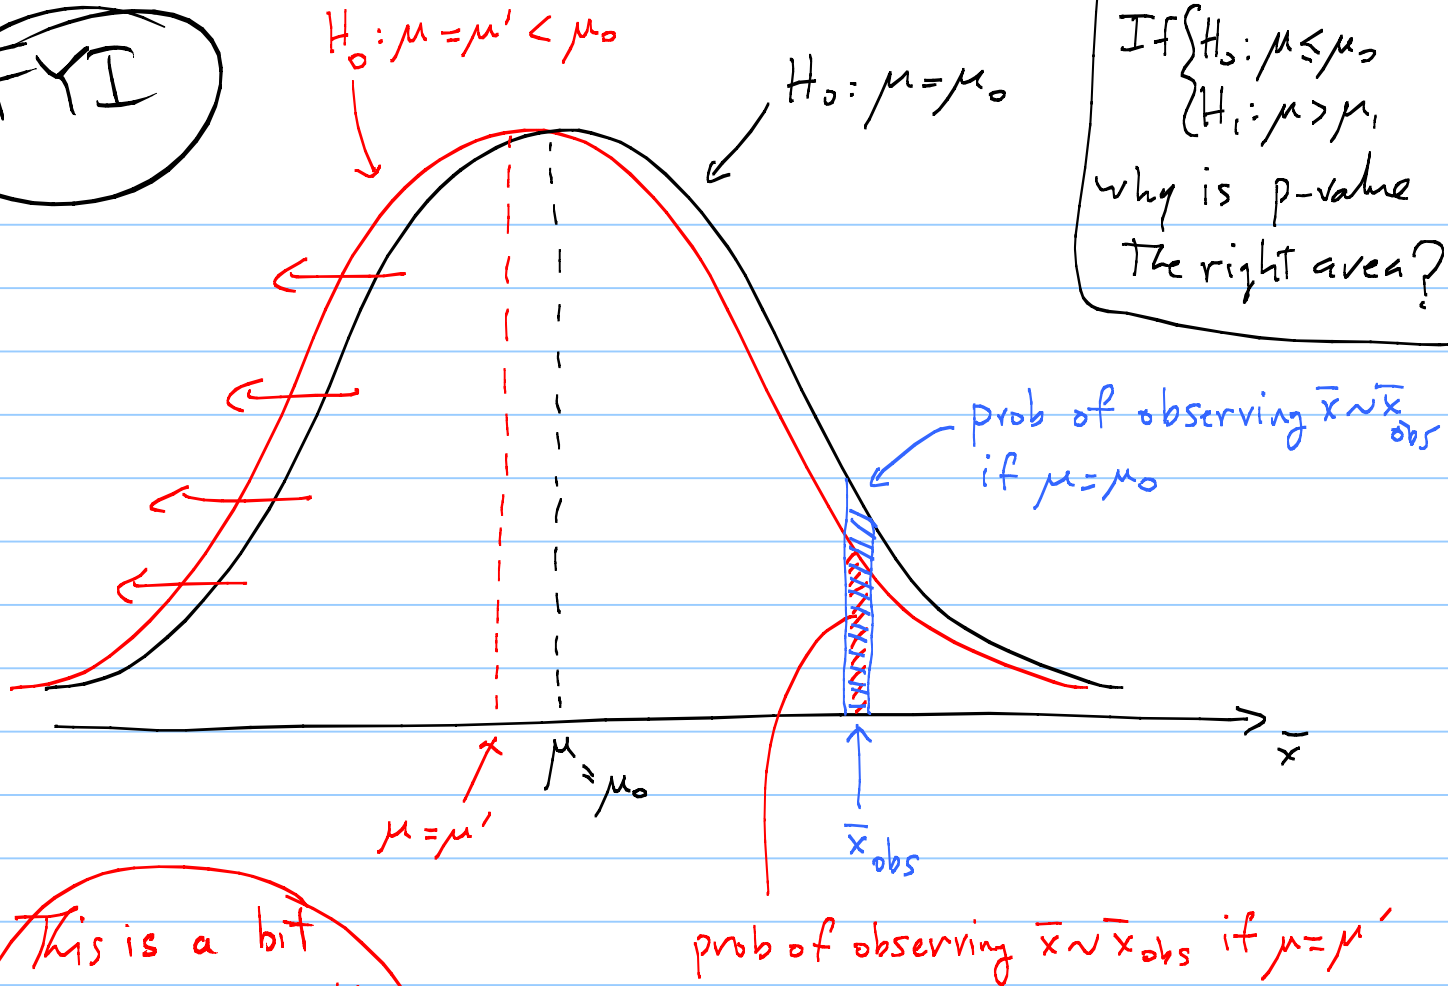 FYI
H₀: μ = μ' < μ₀
H₀: μ = μ₀
If { H₀: μ ≤ μ₀
{ H₁: μ > μ₁
why is p-value
the right area?
prob of observing x̄ ~ x̄obs
if μ = μ₀
x̄
μ = μ₀
μ = μ'
x̄obs
This is a bit
prob of observing x̄ ~ x̄obs if μ = μ'